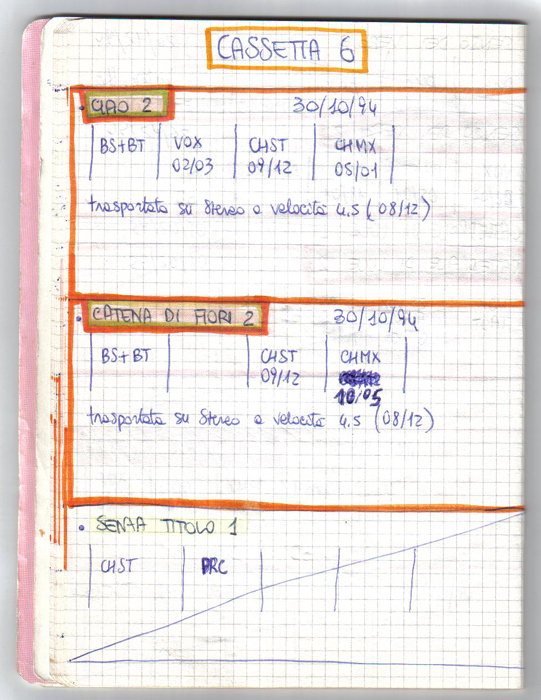 CASSETTA 6
• CIAO 2 30/10/94
BS+BT VOX CHST CHMX
02/03 09/12 05/01
trasportata su stereo a velocità 4.5 (08/12)
• CATENA DI FIORI 2 30/10/94
BS+BT CHST CHMX
09/12
10/05
trasportata su stereo a velocità 4.5 (08/12)
• SENZA TITOLO 1
CHST PRC